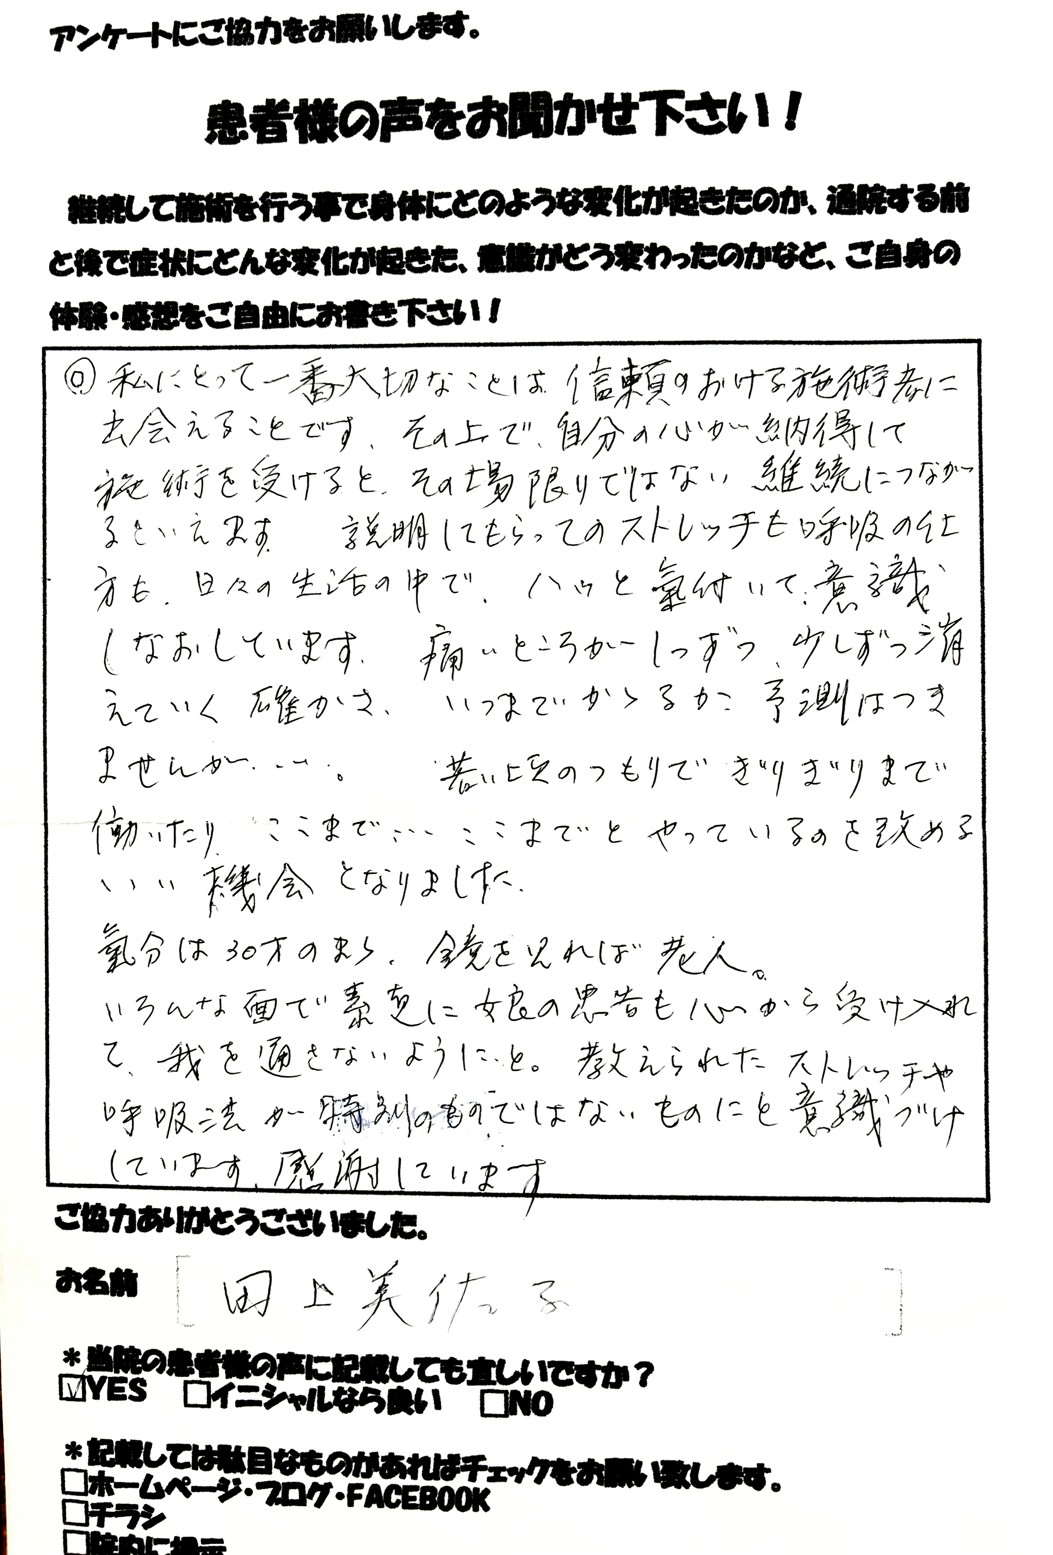 アンケートにご協力をお願いします。
患者様の声をお聞かせ下さい！
継続して施術を行う事で身体にどのような変化が起きたのか、通院する前
と後で症状にどんな変化が起きた、意識がどう変わったのかなど、ご自身の
体験・感想をご自由にお書き下さい！
◎私にとって一番大切なことは 信頼のおける施術者に
出会えることです。その上で、自分の心が納得して
施術を受けると、その場限りではない 継続につなが
るといえます。 説明してもらってのストレッチも呼吸の仕
方も、日々の生活の中で、ハッと氣付いて、意識
しなおしています。 痛いところが一つずつ、少しずつ消
えていく確かさ、いつまでかかるか予測はつき
ませんが……。 若い頃のつもりでぎりぎりまで
働いたり、ここまで…ここまでとやっているのを改める
いい機会となりました。
氣分は30才のまま、鏡を見れば老人。
いろんな面で素直に娘の忠告も心から受け入れ
て、我を通さないようにと。教えられたストレッチや
呼吸法が特別のものではないものにと意識づけ
しています。感謝しています
ご協力ありがとうございました。
お名前 [田上美佐子]
＊当院の患者様の声に記載しても宜しいですか？
☑YES □イニシャルなら良い □NO
＊記載しては駄目なものがあればチェックをお願い致します。
□ホームページ・ブログ・FACEBOOK
□チラシ
□院内に掲示